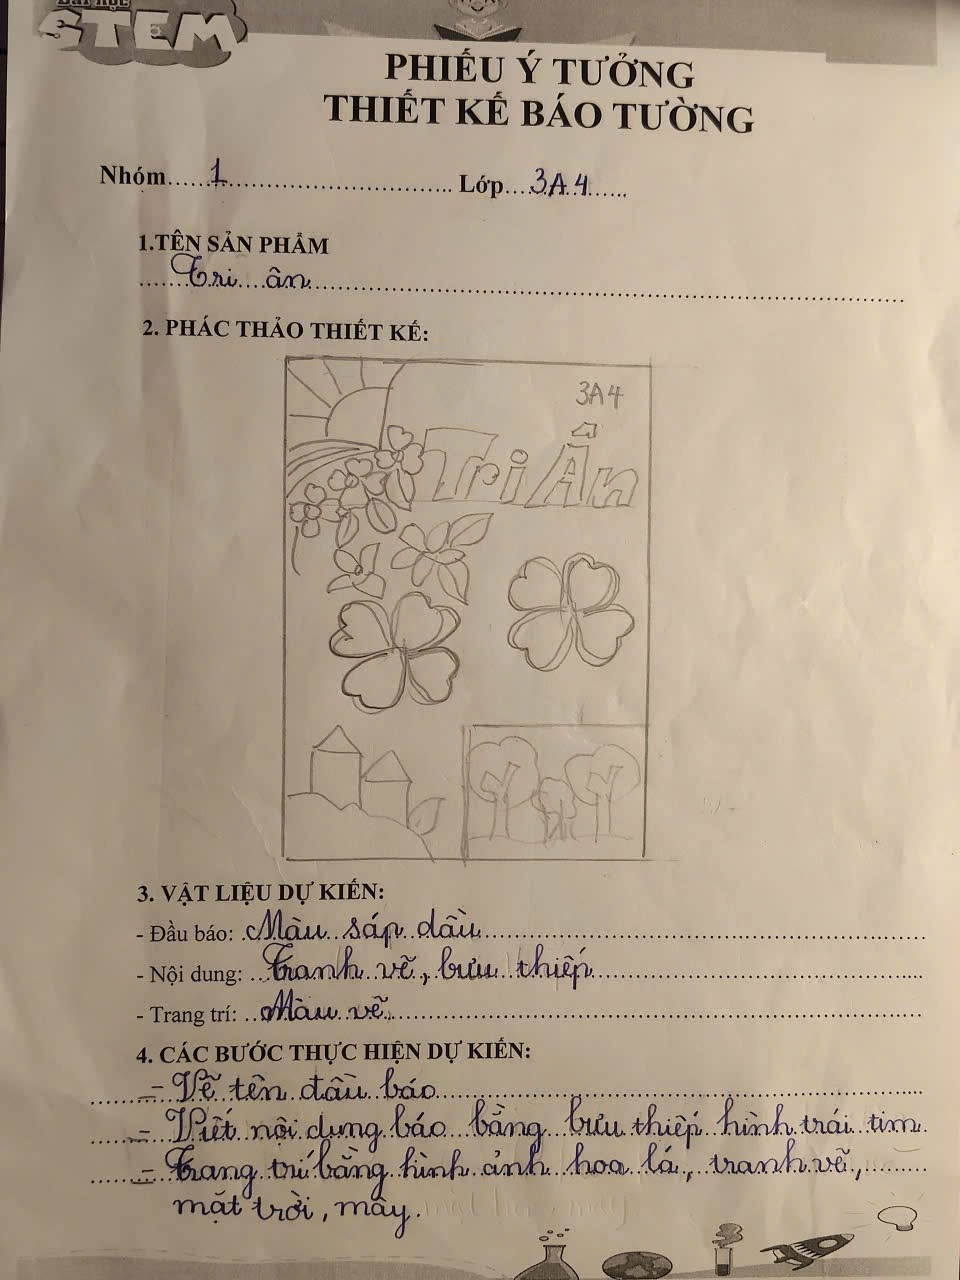 BÀI HỌC
STEM
PHIẾU Ý TƯỞNG
THIẾT KẾ BÁO TƯỜNG
Nhóm.....1.............................. Lớp....3A4......
1.TÊN SẢN PHẨM
Tri ân
2. PHÁC THẢO THIẾT KẾ:
3A4
Tri Ân
3. VẬT LIỆU DỰ KIẾN:
- Đầu báo: Màu sáp dầu
- Nội dung: Tranh vẽ, bưu thiếp
- Trang trí: Màu vẽ
4. CÁC BƯỚC THỰC HIỆN DỰ KIẾN:
- Vẽ tên đầu báo
- Viết nội dung báo bằng bưu thiếp hình trái tim
- Trang trí bằng hình ảnh hoa lá, tranh vẽ,
mặt trời, mây.